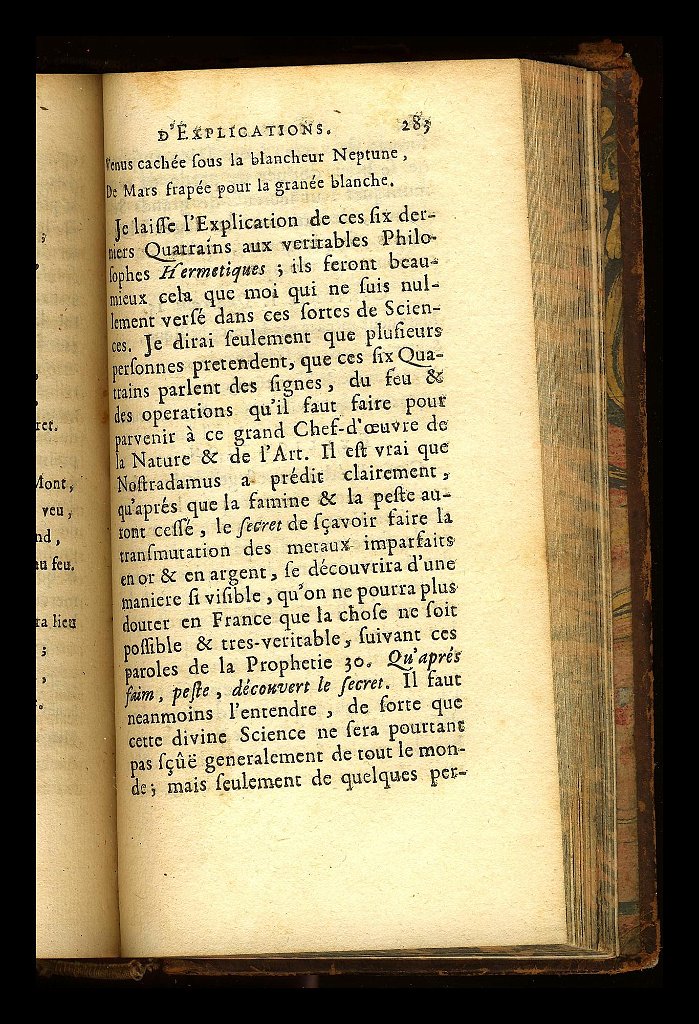 ;
ret.
Mont,
veu,
nd,
au feu.
ra lieu
;
,
.
D'EXPLICATIONS. 285
Venus cachée ſous la blancheur Neptune,
De Mars frapée pour la granée blanche.
Je laiſſe l'Explication de ces ſix der-
niers Quatrains aux veritables Philo-
ſophes Hermetiques ; ils feront beau-
mieux cela que moi qui ne ſuis nul-
lement verſé dans ces ſortes de Scien-
ces. Je dirai ſeulement que pluſieurs
perſonnes pretendent, que ces ſix Qua-
trains parlent des ſignes, du feu &
des operations qu'il faut faire pour
parvenir à ce grand Chef-d'œuvre de
la Nature & de l'Art. Il eſt vrai que
Noſtradamus a prédit clairement,
qu'aprés que la famine & la peſte au-
ront ceſſé, le ſecret de ſçavoir faire la
tranſmutation des metaux imparfaits
en or & en argent, ſe découvrira d'une
maniere ſi viſible, qu'on ne pourra plus
douter en France que la choſe ne ſoit
poſſible & tres-veritable, ſuivant ces
paroles de la Prophetie 30. Qu'aprés
faim, peſte, découvert le ſecret. Il faut
neanmoins l'entendre, de ſorte que
cette divine Science ne ſera pourtant
pas ſçûë generalement de tout le mon-
de; mais ſeulement de quelques per-